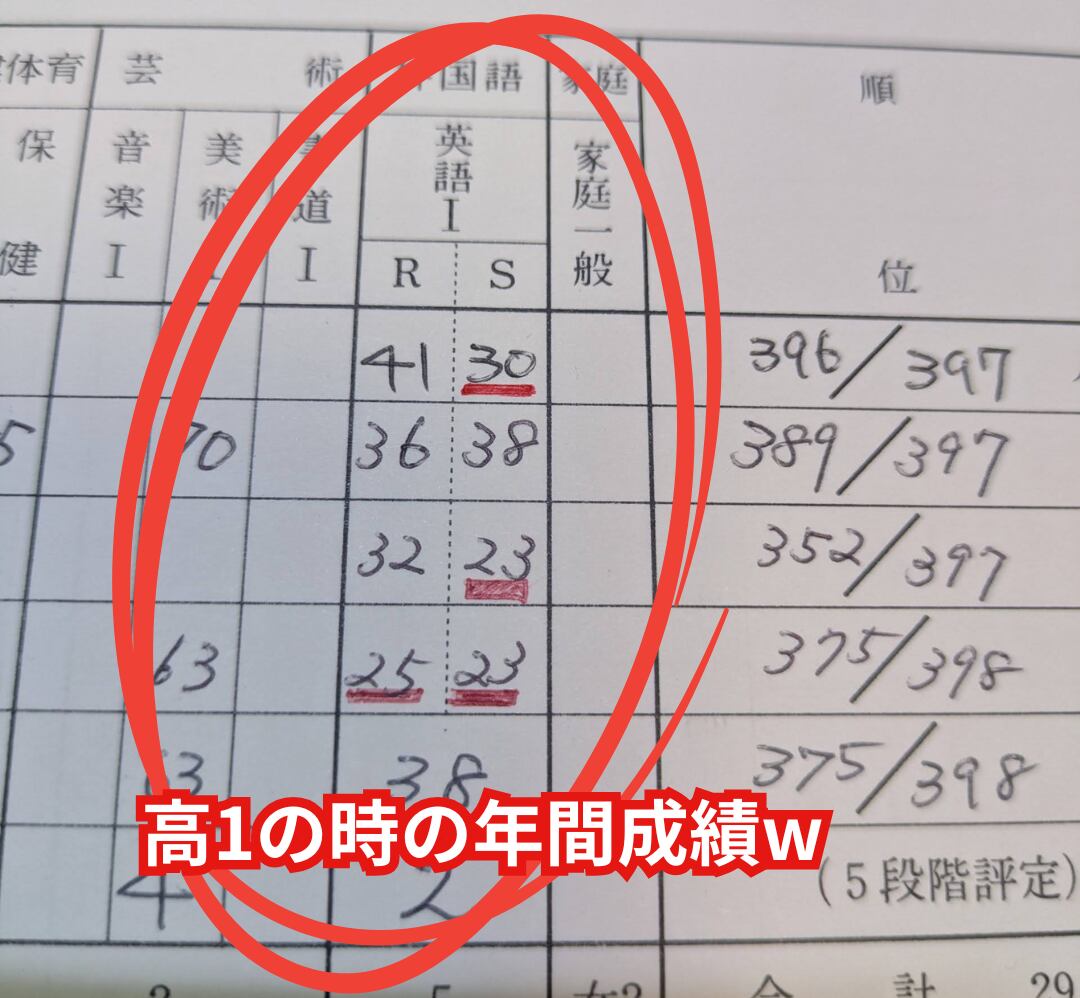 体育 芸 術 国語 家庭 順
保健 音楽I 美術 道I 英語I 家庭一般 位
R S
41 30 396/397
5 70 36 38 389/397
32 23 352/397
63 25 23 375/398
63 38 375/398
高1の時の年間成績w
4 2 (5段階評定)
計 29